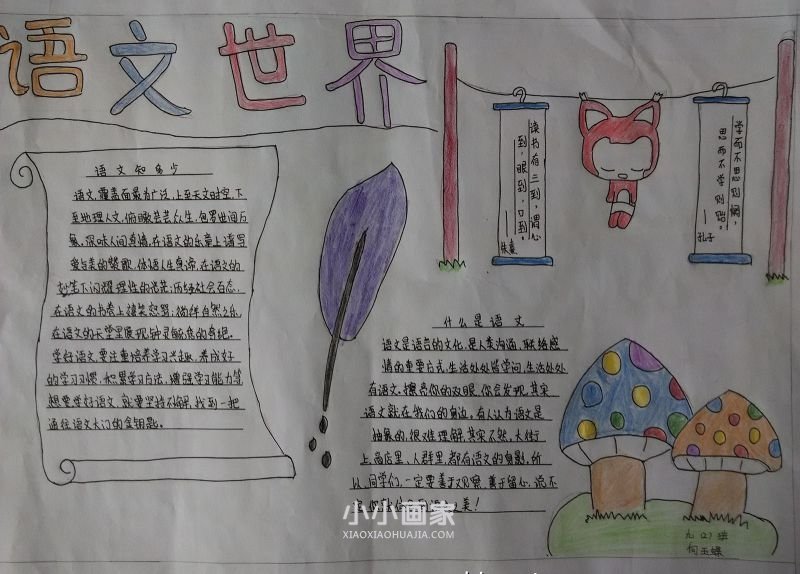 语文世界
语文知多少
语文,覆盖面最为广泛,上至天文时空,下
至地理人文,俯瞰芸芸众生,包罗世间万
象。深味人间真情,在语文的乐章上谱写
爱与美的赞歌,体语人生真谛,在语文的
妙笔下闪耀理性的光芒;历经社会百态,
在语文的书卷上嬉笑怒骂;徜徉自然之乐,
在语文的天堂里展现钟灵毓秀的奇绝。
学好语文,要注重培养学习兴趣,养成好
的学习习惯,积累学习方法,增强学习能力等
想要学好语文,就要坚持不懈,找到一把
通往语文大门的金钥匙。
读书有三到,谓心
到,眼到,口到。
——朱熹
学而不思则惘,
思而不学则殆。
——孔子
什么是语文
语文是语言的文化,是人类沟通,联络感
情的重要方式,生活处处皆学问,生活处处
有语文,擦亮你的双眼,你会发现,其实
语文就在我们的身边。有人认为语文是
抽象的,很难理解,其实不然,大街
上,商店里,人群里,都有语文的身影,所
以,同学们,一定要善于观察,善于留心,说不
美!
小小画家
XIAOXIAOHUAJIA.COM
九(2)班
何玉蝶